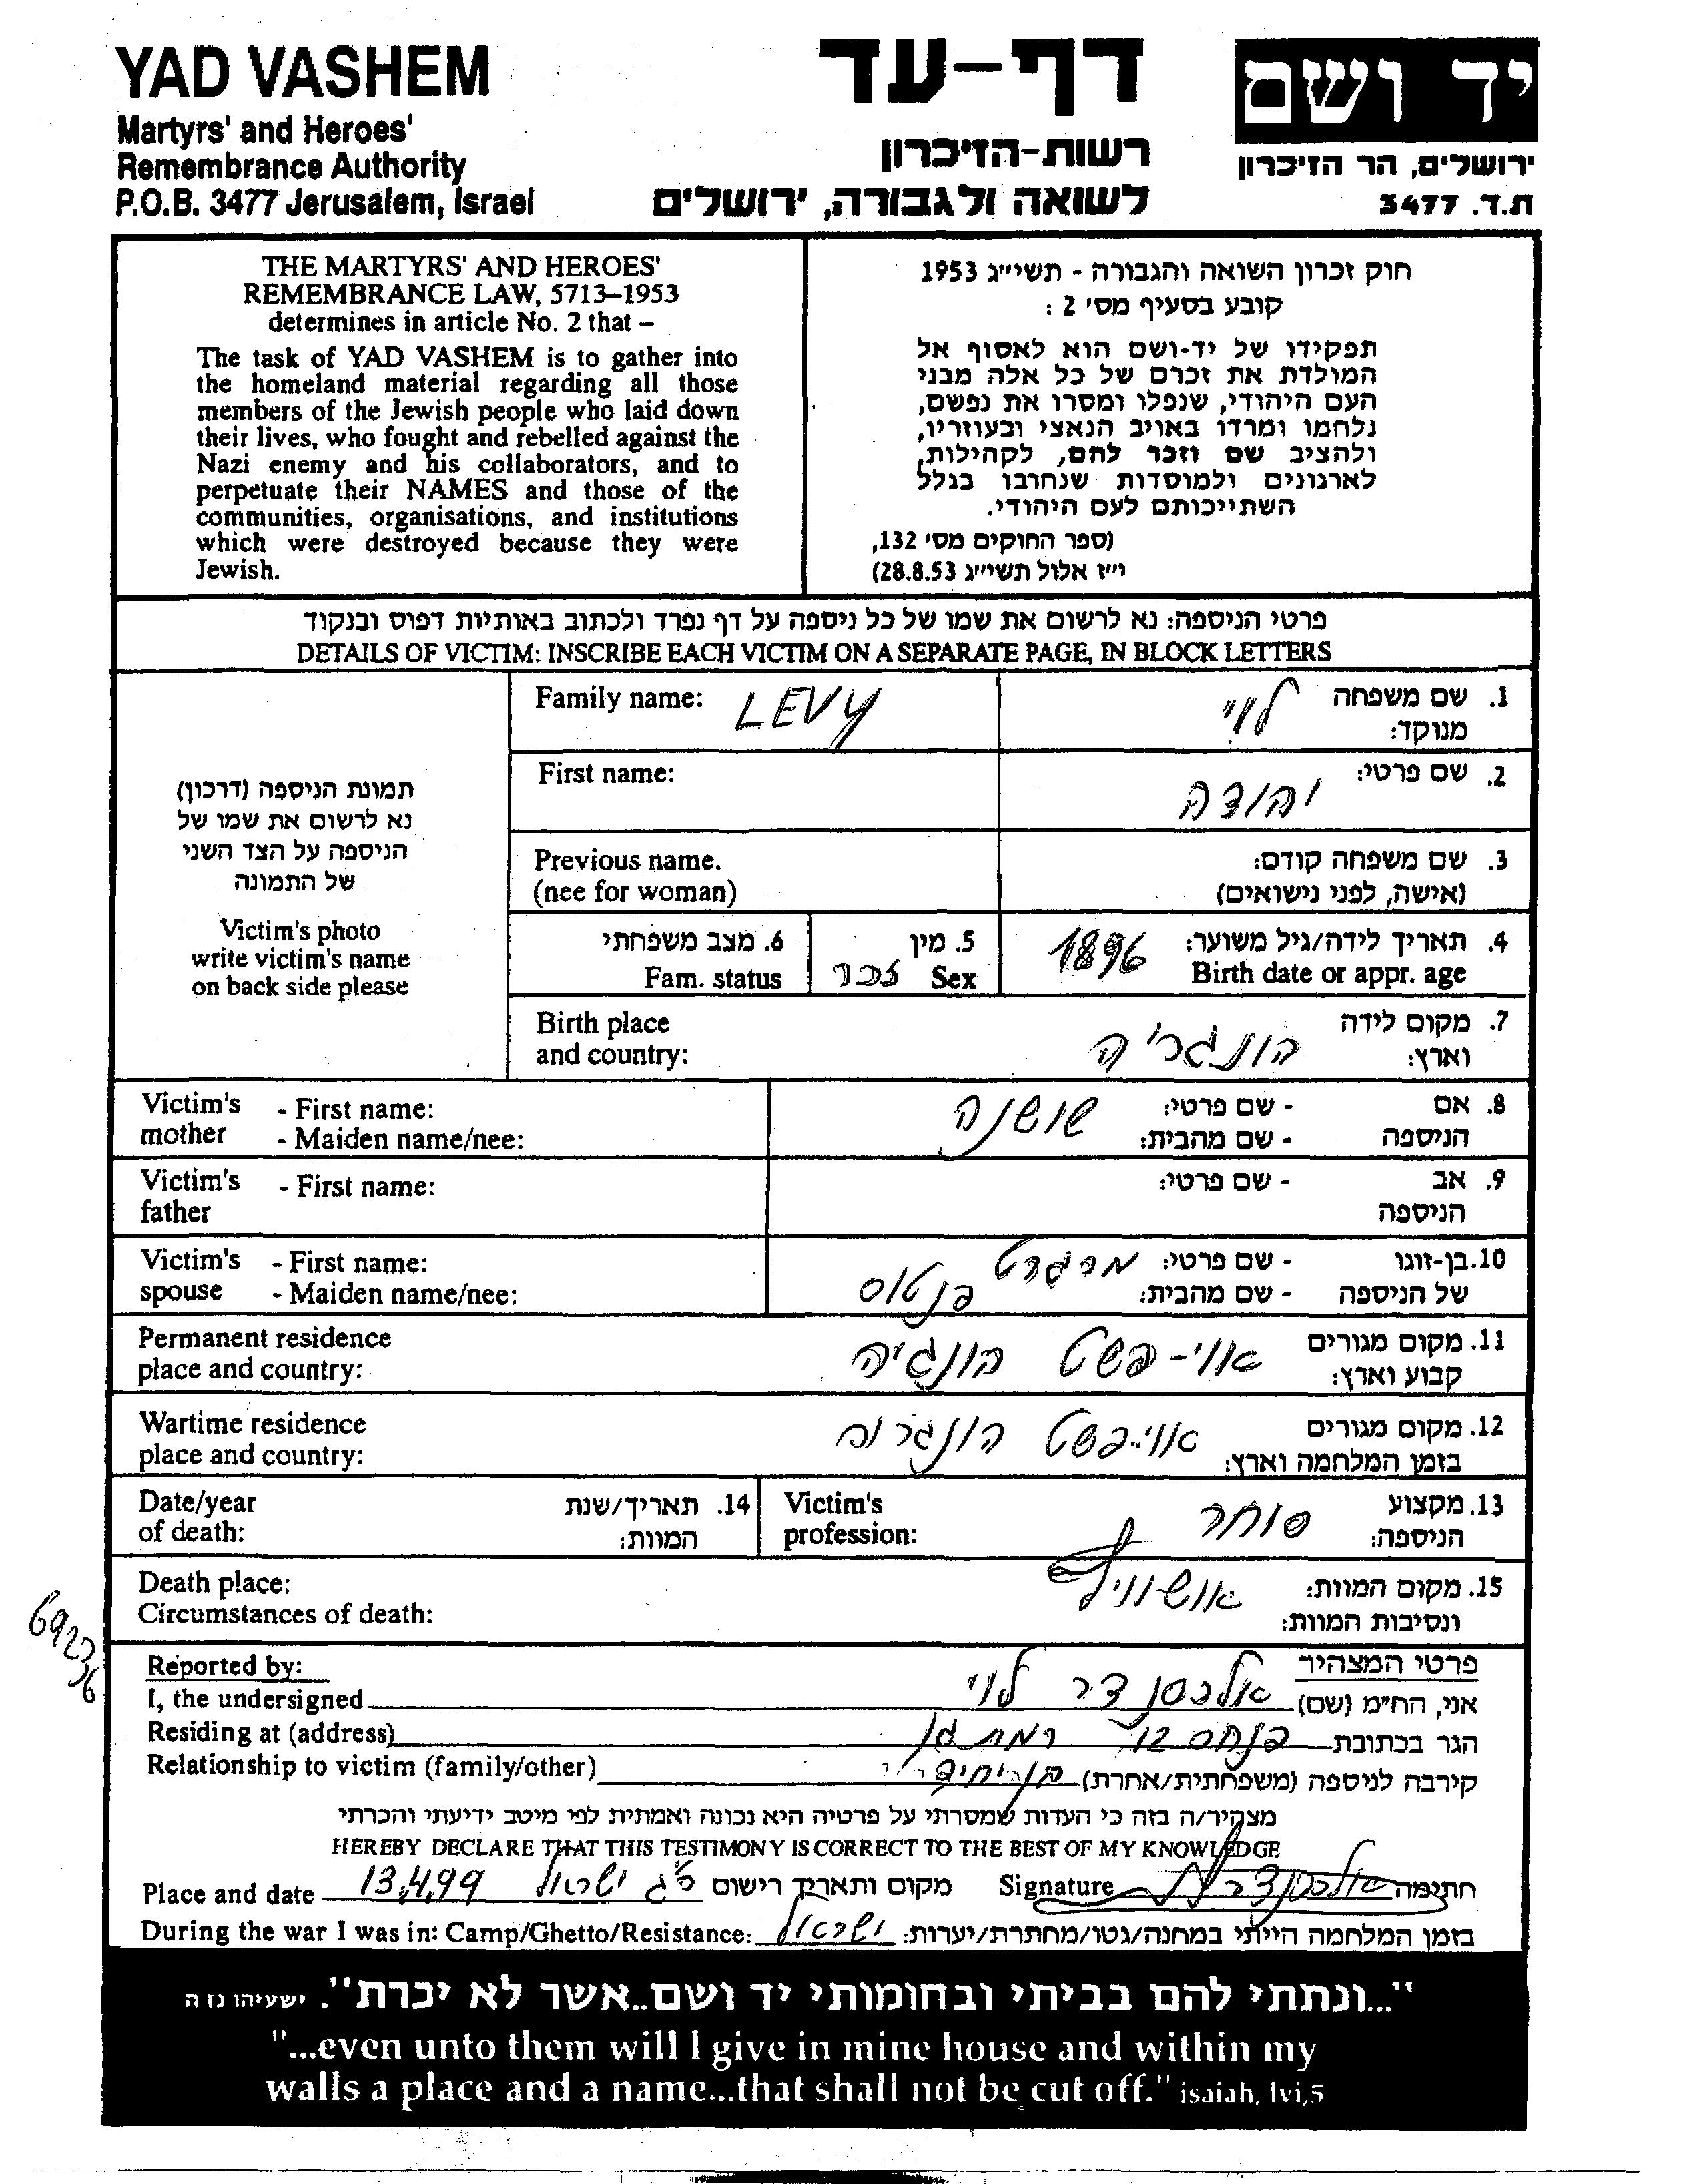 YAD VASHEM
Martyrs' and Heroes'
Remembrance Authority
P.O.B. 3477 Jerusalem, Israel
דף-עד
רשות-הזיכרון
לשואה ולגבורה, ירושלים
יד ושם
ירושלים, הר הזיכרון
ת.ד. 3477
THE MARTYRS' AND HEROES'
REMEMBRANCE LAW, 5713–1953
determines in article No. 2 that –
The task of YAD VASHEM is to gather into
the homeland material regarding all those
members of the Jewish people who laid down
their lives, who fought and rebelled against the
Nazi enemy and his collaborators, and to
perpetuate their NAMES and those of the
communities, organisations, and institutions
which were destroyed because they were
Jewish.
חוק זכרון השואה והגבורה - תשי״ג 1953
קובע בסעיף מס' 2 :
תפקידו של יד-ושם הוא לאסוף אל
המולדת את זכרם של כל אלה מבני
העם היהודי, שנפלו ומסרו את נפשם,
נלחמו ומרדו באויב הנאצי ובעוזריו,
ולהציב שם וזכר להם, לקהילות,
לארגונים ולמוסדות שנחרבו בגלל
השתייכותם לעם היהודי.
(ספר החוקים מס' 132,
י״ז אלול תשי״ג 28.8.53)
פרטי הניספה: נא לרשום את שמו של כל ניספה על דף נפרד ולכתוב באותיות דפוס ובנקוד
DETAILS OF VICTIM: INSCRIBE EACH VICTIM ON A SEPARATE PAGE, IN BLOCK LETTERS
תמונת הניספה (דרכון)
נא לרשום את שמו של
הניספה על הצד השני
של התמונה
Victim's photo
write victim's name
on back side please
Family name: LEVY לוי 1. שם משפחה
מנוקד:
First name: יהודה 2. שם פרטי:
Previous name. 3. שם משפחה קודם:
(nee for woman) (אישה, לפני נישואים)
6. מצב משפחתי 5. מין 1896 4. תאריך לידה/גיל משוער:
Fam. status זכר Sex Birth date or appr. age
Birth place 7. מקום לידה
and country: הונגריה וארץ:
Victim's - First name: שושנה - שם פרטי: 8. אם
mother - Maiden name/nee: - שם מהבית: הניספה
Victim's - First name: - שם פרטי: 9. אב
father הניספה
Victim's - First name: מרגרט - שם פרטי: 10. בן-זוגו
spouse - Maiden name/nee: - שם מהבית: של הניספה
Permanent residence 11. מקום מגורים
place and country: אוי-פשט הונגיה קבוע וארץ:
Wartime residence 12. מקום מגורים
place and country: אוי-פשט בזמן המלחמה וארץ:
Date/year 14. תאריך/שנת Victim's סוחר 13. מקצוע
of death: המוות: profession: הניספה:
Death place: 15. מקום המוות:
Circumstances of death: אושוויץ ונסיבות המוות:
Reported by: פרטי המצהיר
I, the undersigned אלכסנדר לוי אני, הח״מ (שם)
Residing at (address) פנחס 12 רמת גן הגר בכתובת
Relationship to victim (family/other) קירבה לניספה (משפחתית/אחרת)
מצהיר/ה בזה כי העדות שמסרתי על פרטיה היא נכונה ואמתית לפי מיטב ידיעתי והכרתי
HEREBY DECLARE THAT THIS TESTIMONY IS CORRECT TO THE BEST OF MY KNOWLEDGE
Place and date 13,4,99 ישראל מקום ותאריך רישום Signature אלכסנדר חתימה
During the war I was in: Camp/Ghetto/Resistance: ישראל בזמן המלחמה הייתי במחנה/גטו/מחתרת/יערות:
"...ונתתי להם בביתי ובחומותי יד ושם..אשר לא יכרת". ישעיהו נו ה
"...even unto them will I give in mine house and within my
walls a place and a name...that shall not be cut off." isaiah, lvi,5